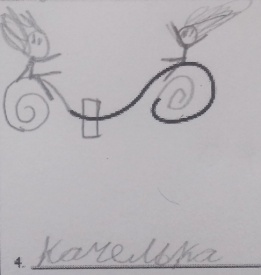 4. Качелька